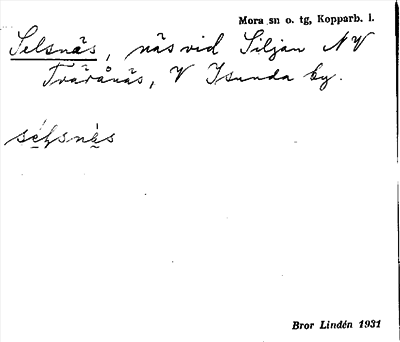 Mora sn o. tg, Kopparb. l.
Selsnäs, näs vid Siljan NV
Tvåränäs, V Isunda by.
Bror Lindén 1931